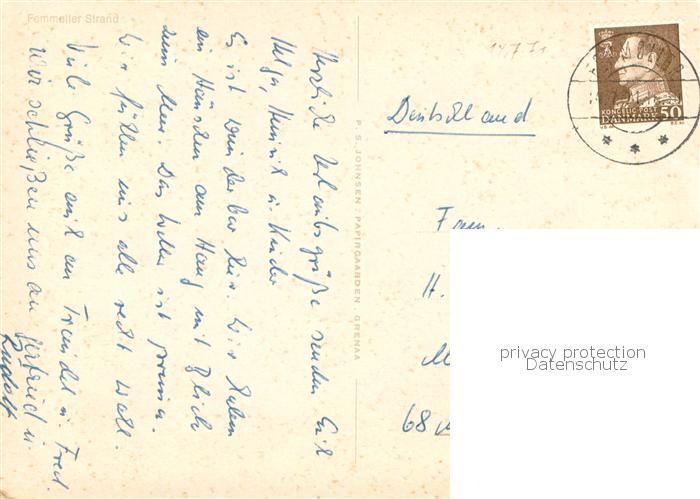 Femmøller Strand
Herzliche Urlaubsgrüße senden Euch
Helga, Heinrich u. Kinder
Es ist wunderbar hier. Wir haben
ein Häuschen am Hang mit Blick
zum Meer. Das Wetter ist prima.
Wir fühlen uns alle recht wohl.
Viele Grüße auch an u. Fred.
Wir schließen uns an u.
Rudolf
P. S. JOHNSEN · PAPIRGAARDEN · GRENAA
14.7.71
KONGELIG POST
DANMARK 50
Deutschland
Fam.
H.
M
68
privacy protection
Datenschutz